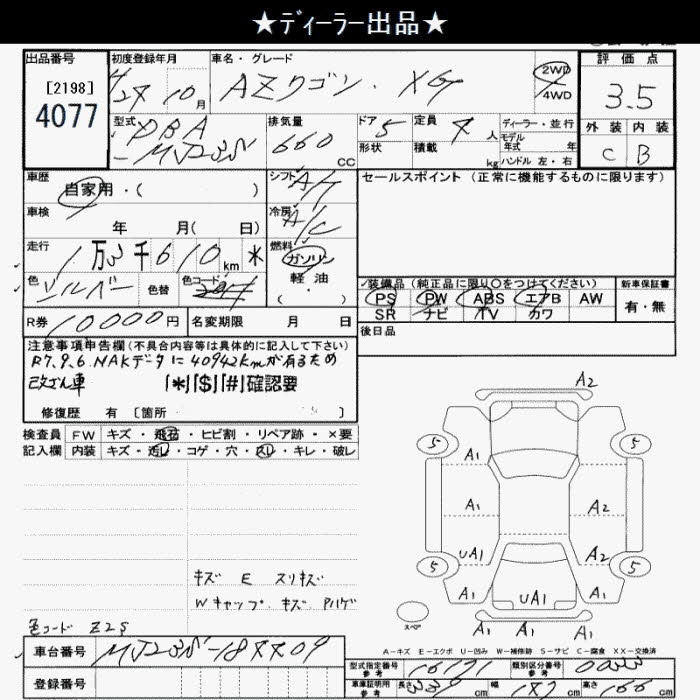 ★ディーラー出品★
出品番号
[2198]
4077
初度登録年月
H27 10月
車名・グレード
AZワゴン・XG
2WD
4WD
評価点
3.5
外装 内装
C B
型式
DBA
-MJ23S
排気量
660
CC
ドア 5
形状
定員 4人
積載 kg
ディーラー・並行
モデル
年式 年
ハンドル 左・右
車歴
自家用・( )
シフト
A/T
セールスポイント (正常に機能するものに限ります)
車検
年 月( 日)
冷房
A/C
走行
1万3千610km *
燃料
ガソリン
軽油
( ・ )
色
シルバー
色替
色コード
R券 10000円
名変期限 月 日
装備品(純正品に限り〇をつけてください)
PS PW ABS エアB AW
SR ナビ TV カワ
新車保証書
有・無
後日品
注意事項申告欄(不具合内容等は具体的に記入して下さい)
R7.9.6 NAKデータに40942kmが有るため
改ざん車 「*」「$」「#」確認要
修復歴 有 [箇所 ]
検査員 FW キズ・飛石・ヒビ割・リペア跡・×要
記入欄 内装 キズ・汚レ・コゲ・穴・スレ・キレ・破レ
A2
5 5
A1
A1 A2
UA1 A2
5 5
A1 UA1 A1
A1 A1
スペア
キズ E スリキズ
Wキャップ キズ Pハゲ
色コード Z2S
A-キズ E-エクボ U-凹み W-補修跡 S-サビ C-腐食 XX-交換済
車台番号 MJ23S-18XX09
登録番号
型式指定番号
参考
類別区分番号
参考
車庫証明用
参考
長さ 339cm
幅 147cm
高さ 166cm